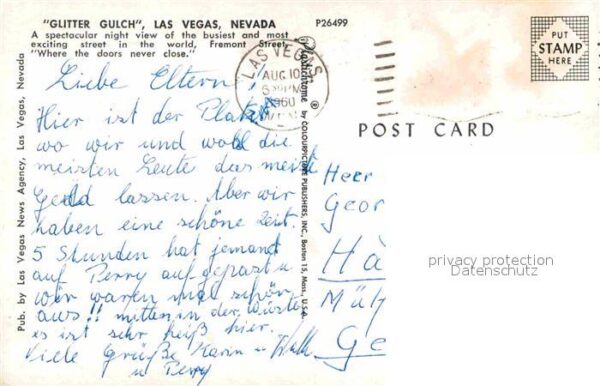 "GLITTER GULCH", LAS VEGAS, NEVADA
P26499
A spectacular night view of the busiest and most
exciting street in the world, Fremont Street,
"Where the doors never close."
Pub. by Las Vegas News Agency, Las Vegas, Nevada
Plastichrome ® by COLOURPICTURE PUBLISHERS, INC., Boston 15, Mass., U.S.A.
PUT
STAMP
HERE
LAS VEGAS
AUG 10
1960
POST CARD
Liebe Eltern!
Hier ist der Platz
wo wir und wohl die
meisten Leute das meiste
Geld lassen. Aber wir
haben eine schöne Zeit.
5 Stunden hat jemand
auf Perry aufgepasst u
wir waren mal schön
aus!! mitten in der Wüste
es ist sehr heiß hier.
Viele Grüße Karin u
u Perry
Herr
Geor
Hä
Ge
privacy protection
Datenschutz